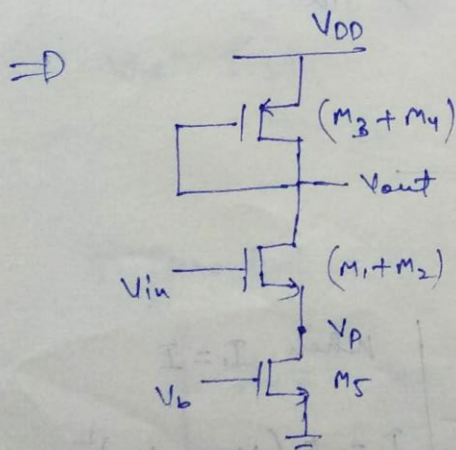 VDD
(M3 + M4)
Vout
Vin
(M1 + M2)
Vp
Vb
M5